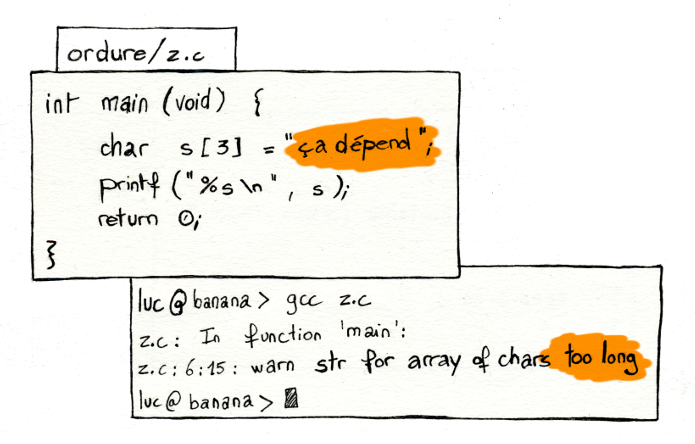 ordure/z.c
int main (void) {
char s[3] = "ça dépend";
printf ("%s\n", s);
return 0;
}
luc@banana> gcc z.c
z.c: In function 'main':
z.c:6:15: warn str for array of chars too long
luc@banana>